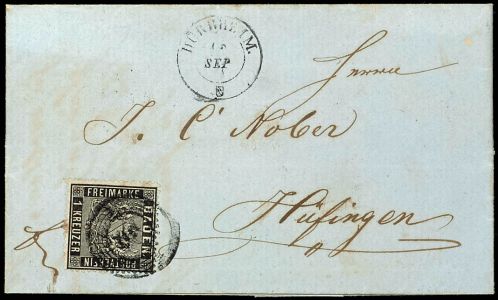 DÜRRHEIM.
SEP
Herrn
J. C. Nober
Hüfingen
FREIMARKE
BADEN
1 KREUZER
POSTVEREIN